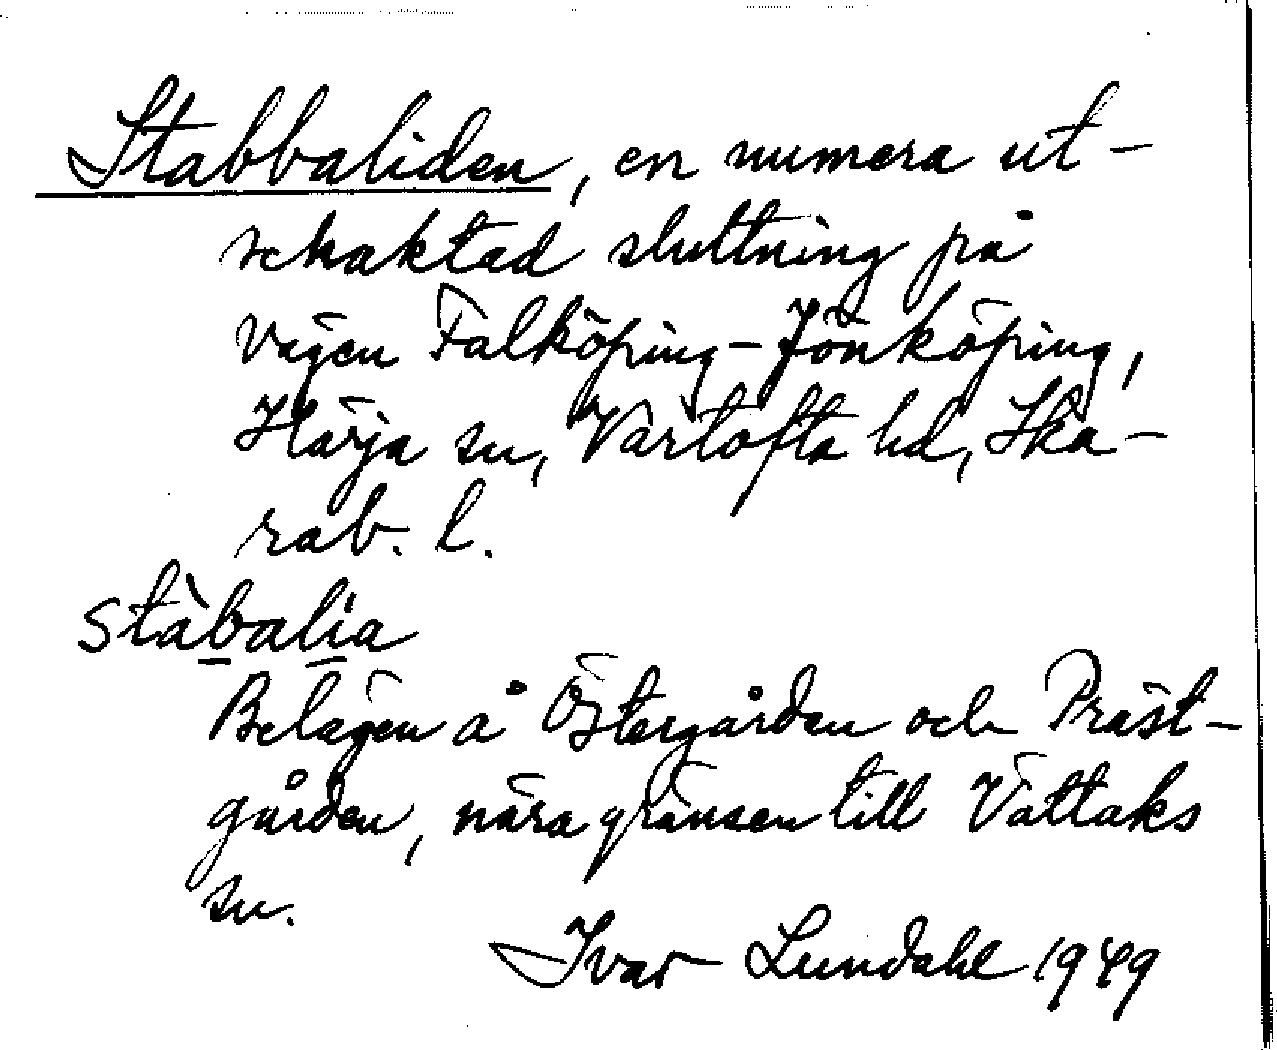 Stabbaliden, en numera ut-
schaktad sluttning på
vägen Falköping-Jönköping,
Härja sn, Vartofta hd, Ska-
rab. l.
stàbalia
Belägen å Östergården och Präst-
gården, nära gränsen till Vättaks
sn.
Ivar Lundahl 1949